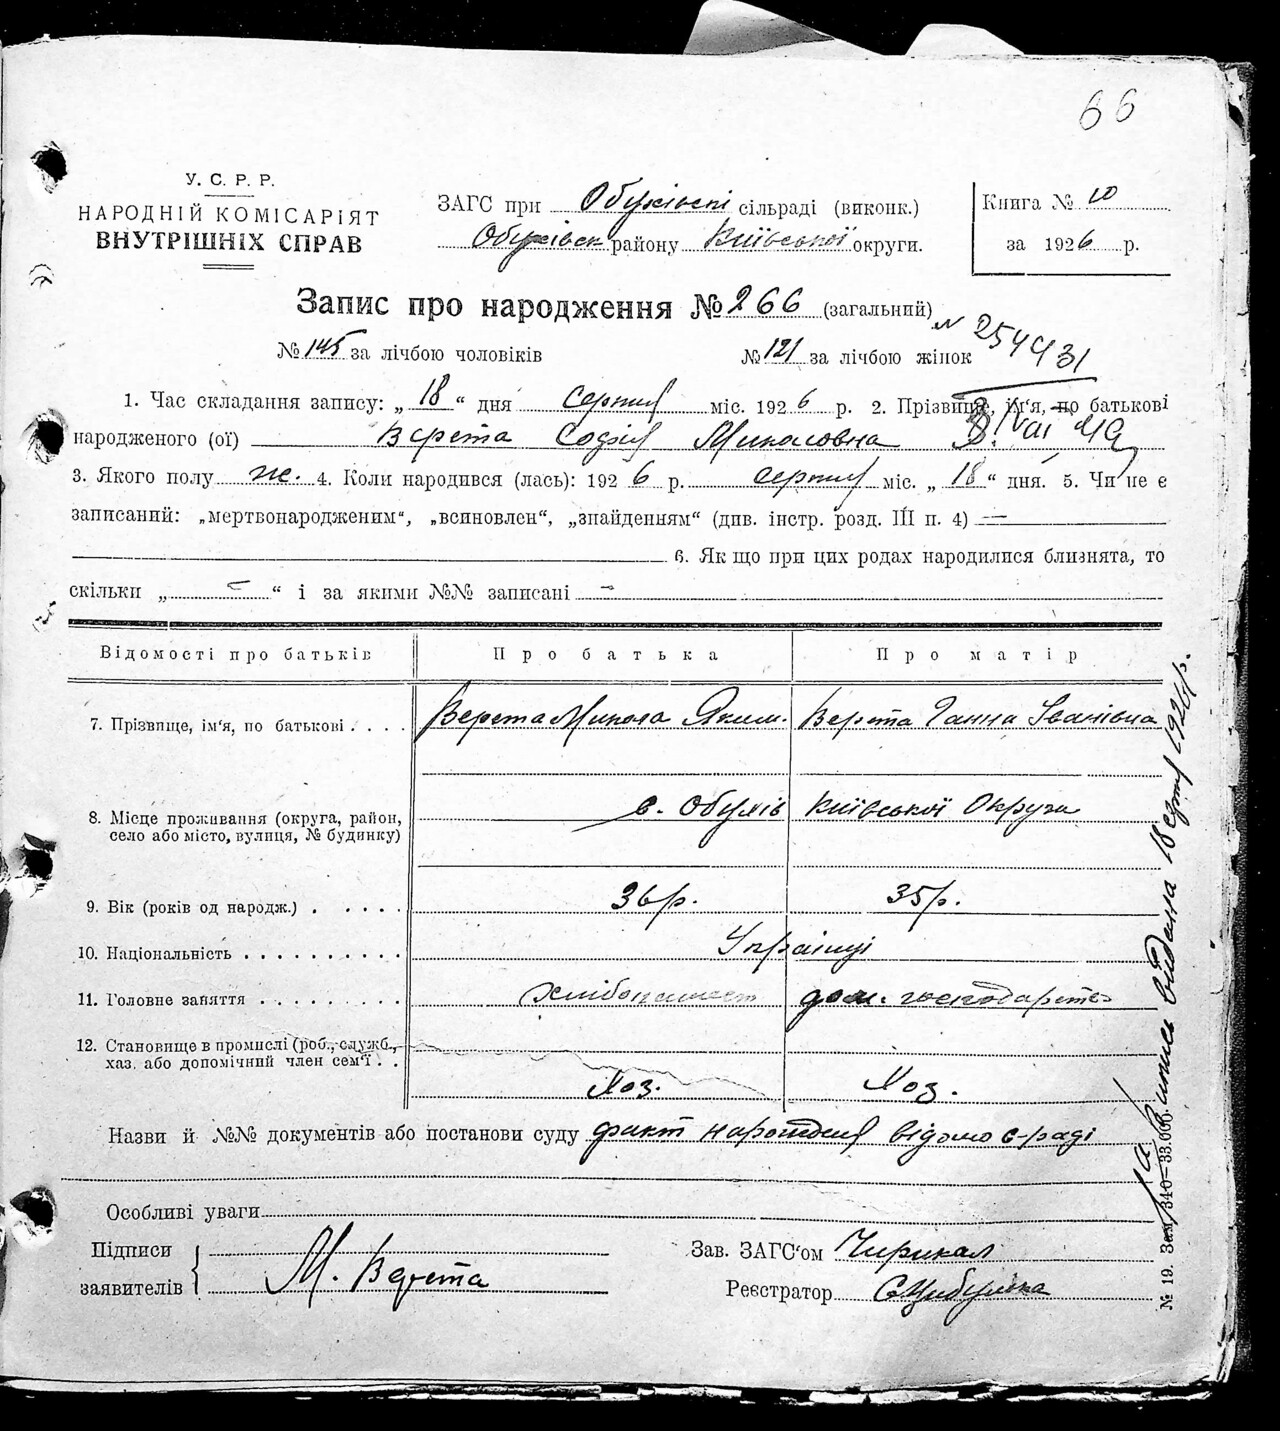 66
У. С. Р. Р.
НАРОДНІЙ КОМІСАРІЯТ
ВНУТРІШНІХ СПРАВ
ЗАГС при Обухівскі сільраді (виконк.)
Обухівск району Київської округи.
Книга № 10
за 1926 р.
Запис про народження № 266 (загальний)
N 254431
№ 145 за лічбою чоловіків № 121 за лічбою жінок
1. Час складання запису: „ 18 “ дня серпня міс. 1926 р. 2. Прізвище, ім'я, по батькові
народженого (ої) Верета Софія Миколовна
3. Якого полу ж. 4. Коли народився (лась): 1926 р. серпня міс. „ 18 “ дня. 5. Чи не є
записаний: „мертвонародженим“, „всиновлен“, „знайденням“ (див. інстр. розд. III п. 4) —
6. Як що при цих родах народилися близнята, то
скільки „ – “ і за якими №№ записані –
Відомості про батьків Про батька Про матір
7. Прізвище, ім'я, по батькові . . . . Верета Микола Яким. Верета Ганна Іванівна
8. Місце проживання (округа, район,
село або місто, вулиця, № будинку) с. Обухів Київської Округи
9. Вік (років од народж.) . . . . . 36 р. 35 р.
10. Національність . . . . . . . . . . Українці
11. Головне заняття . . . . . . . . . дом. господарство
12. Становище в промислі (роб., служб.,
хаз. або допомічний член сем'ї . . Хоз. Хоз.
Назви й №№ документів або постанови суду факт народження відомо с-раді
Особливі уваги
Підписи
заявителів М. Верета
Зав. ЗАГС'ом Чирикал
Реєстратор С Цибулька
№ 19. Зам. 340—33.000.
випись видана 18 серп 1926 р.